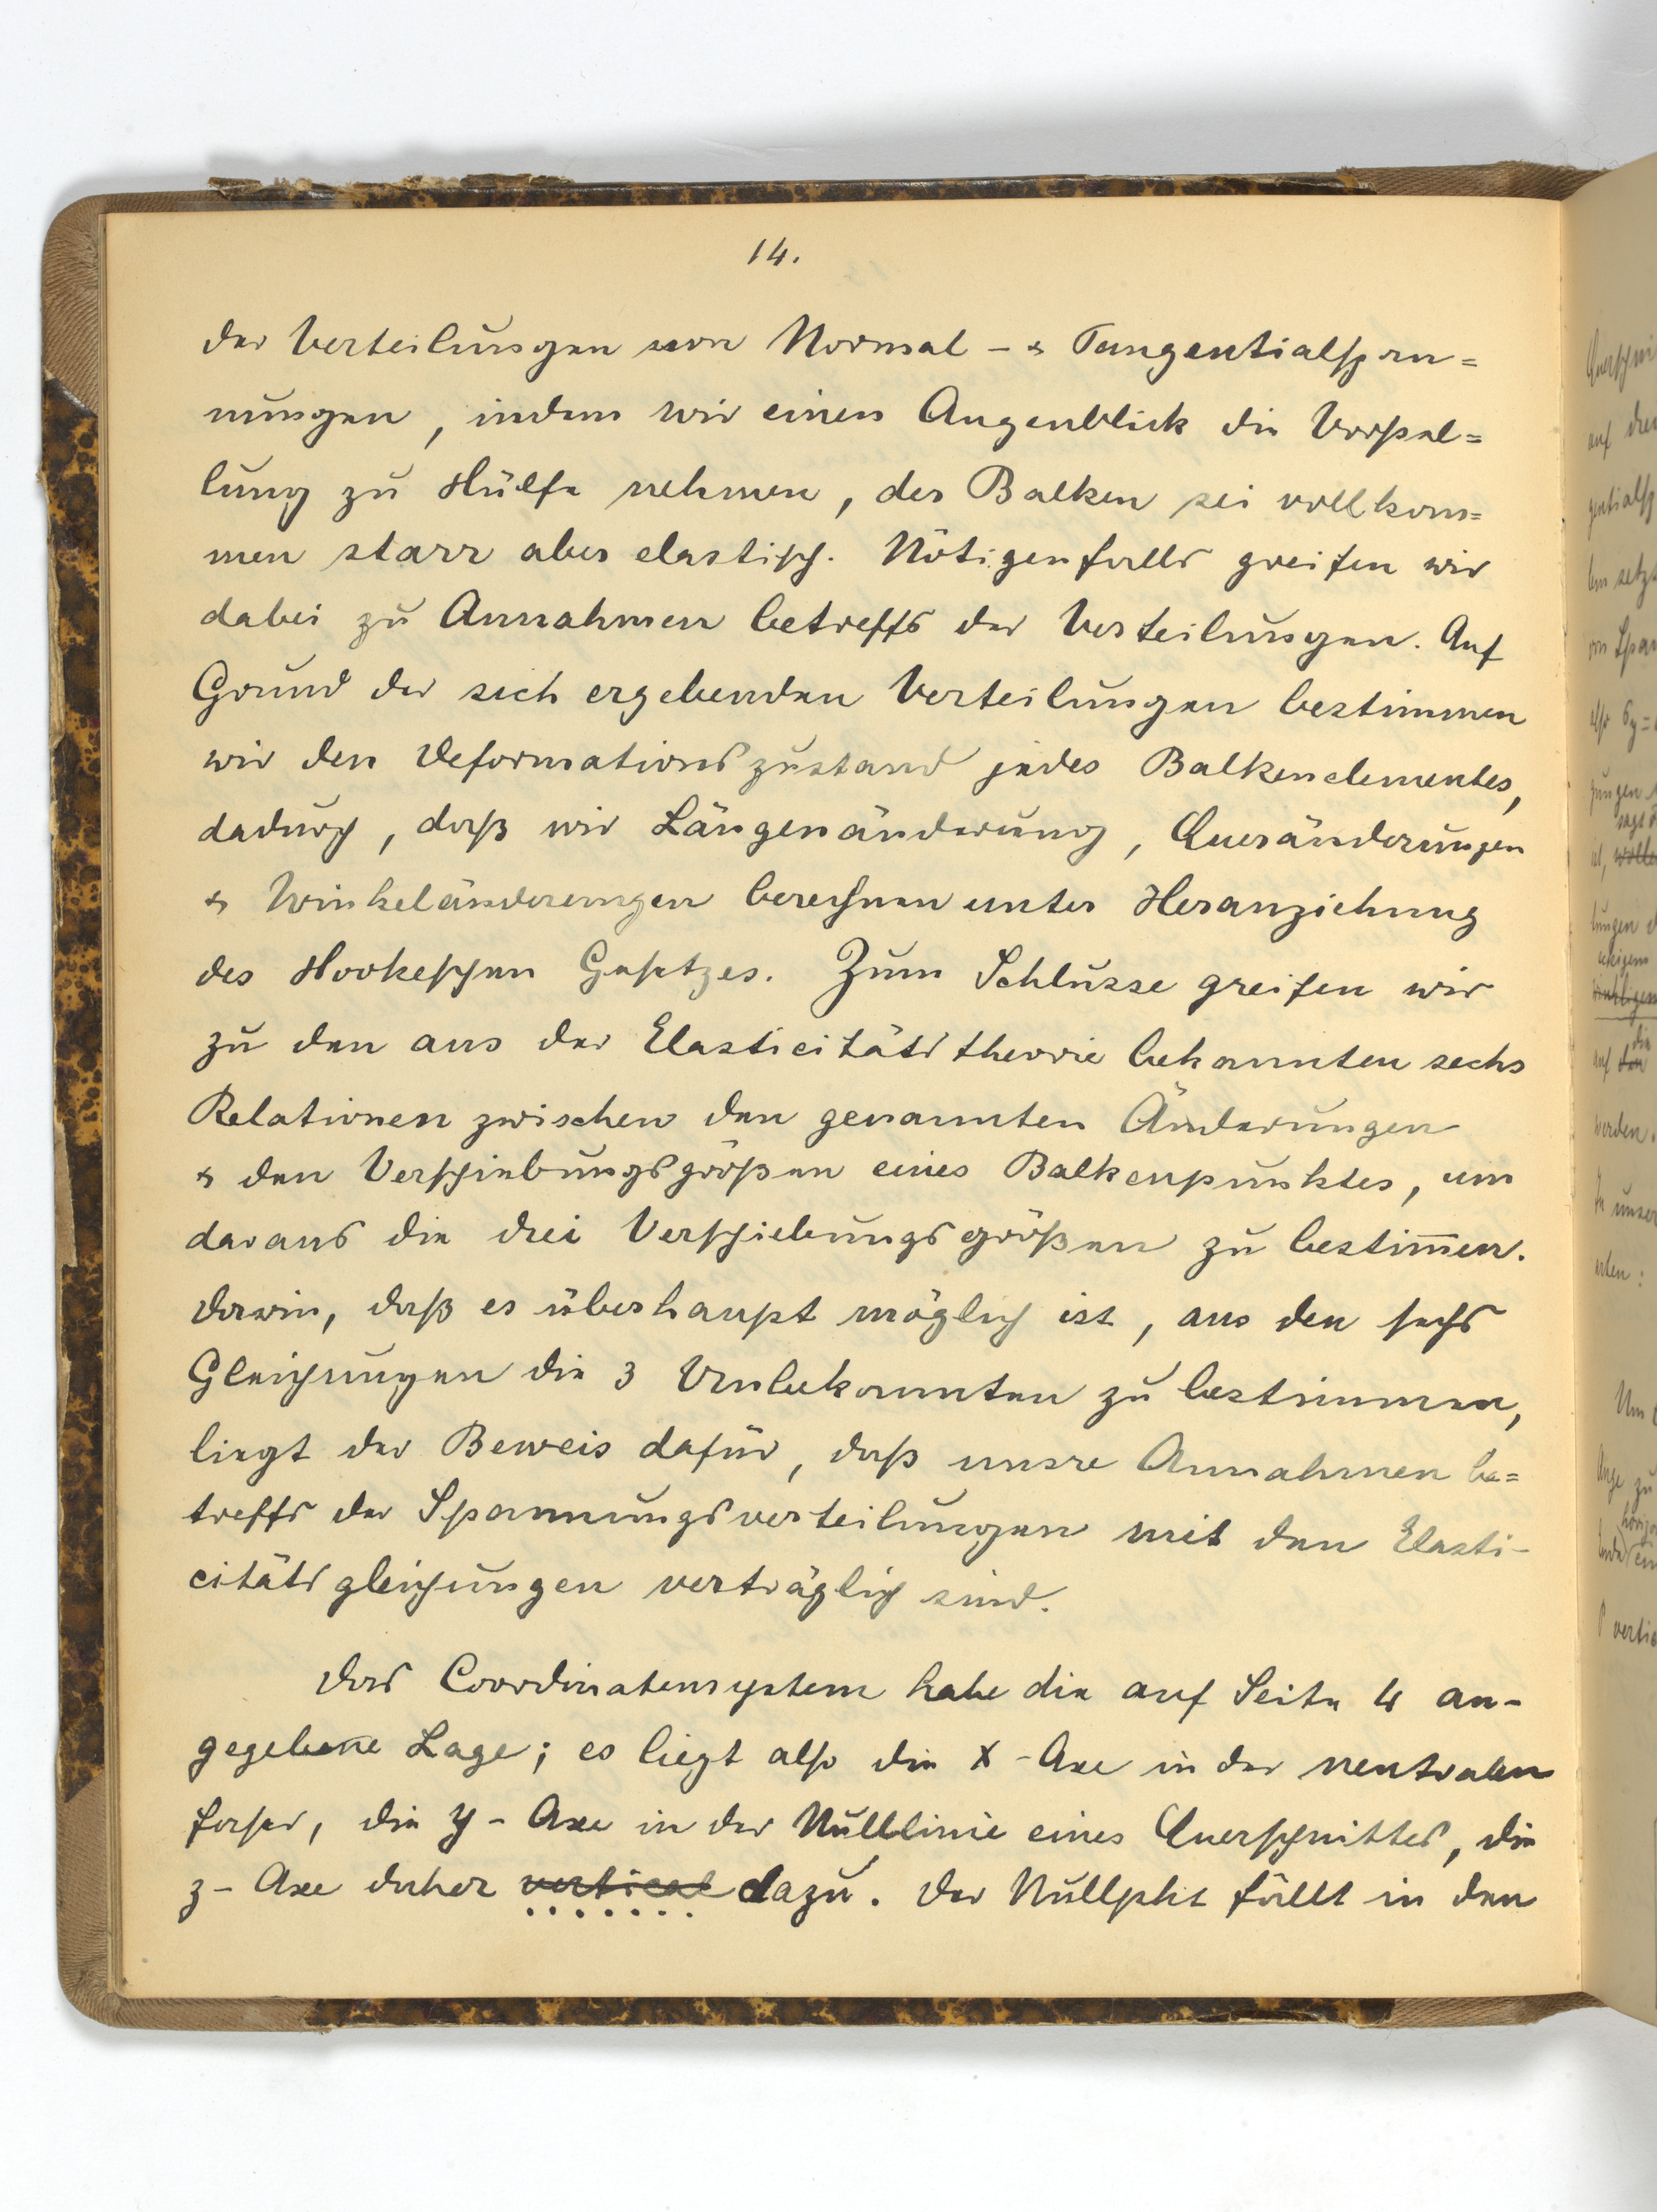 14.
der Verteilungen von Normal- & Tangentialspan=
nungen, indem wir einen Augenblick die Vorstel=
lung zu Hülfe nehmen, der Balken sei vollkom=
men starr aber elastisch. Nötigenfalls greifen wir
dabei zu Annahmen betreffs der Verteilungen. Auf
Grund der sich ergebenden Verteilungen bestimmen
wir den Deformationszustand jedes Balkenelementes,
dadurch, daß wir Längenänderung, Queränderungen
& Winkeländerungen berechnen unter Heranziehung
des Hookeschen Gesetzes. Zum Schlusse greifen wir
zu den aus der Elasticitätstheorie bekannten sechs
Relationen zwischen den genannten Änderungen
& den Verschiebungsgrößen eines Balkenpunktes, um
daraus die drei Verschiebungsgrößen zu bestim̅en.
Darin, daß es überhaupt möglich ist, aus den sechs
Gleichungen die 3 Unbekannten zu bestimmen,
liegt der Beweis dafür, daß unsre Annahmen be=
treffs der Spannungsverteilungen mit den Elasti-
citätsgleichungen verträglich sind.
Das Coordinatensystem habe die auf Seite 4 an-
gegebene Lage; es liegt also die X-Axe in der neutralen
Faser, die y-Axe in der Nulllinie eines Querschnittes, die
z-Axe daher vertical dazu. Der Nullpkt fällt in den